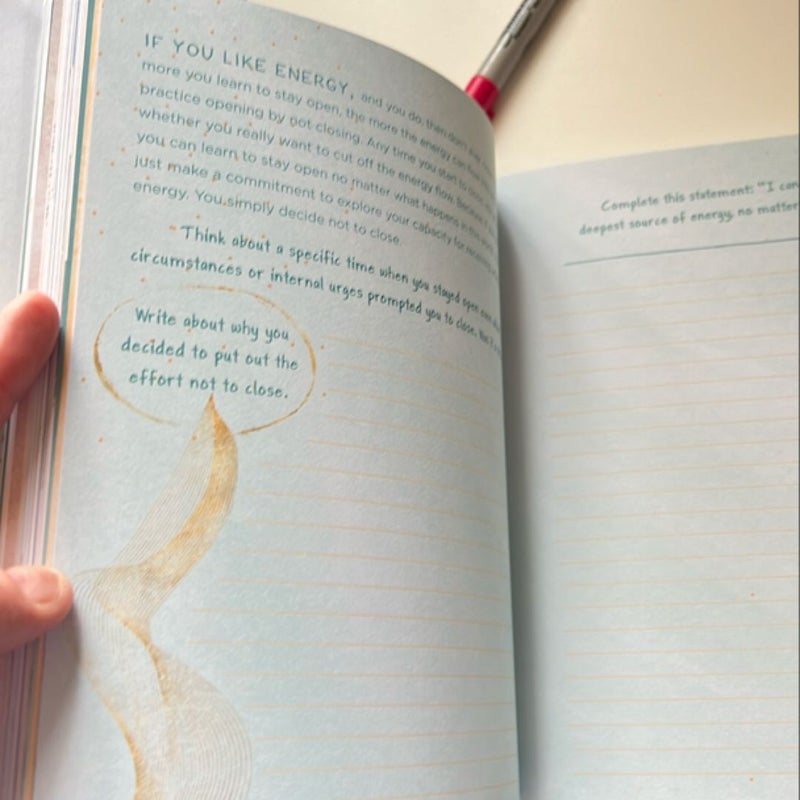 IF YOU LIKE ENERGY, and you do, then don't ever
more you learn to stay open, the more the energy can flow
practice opening by not closing. Any time you start to close,
whether you really want to cut off the energy flow. Because if
you can learn to stay open no matter what happens in this world
just make a commitment to explore your capacity for receiving
energy. You simply decide not to close.
Think about a specific time when you stayed open even
circumstances or internal urges prompted you to close.
Write about why you
decided to put out the
effort not to close.
Complete this statement: "I can
deepest source of energy, no matter